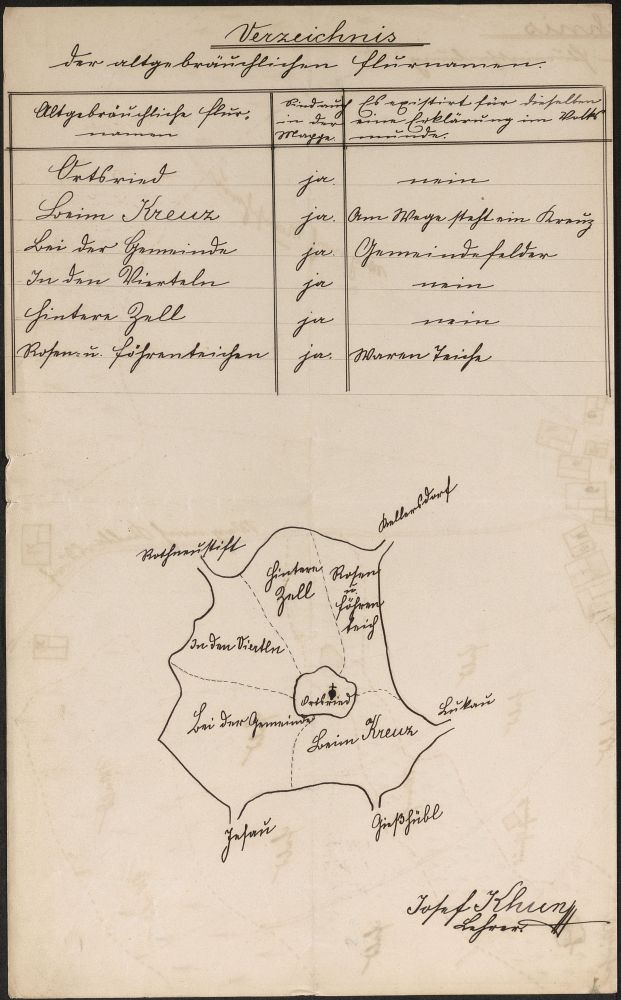 Verzeichnis
der altgebräuchlichen Flurnamen.
Altgebräuchliche Flur-
namen
Sind auch
in der
Mappe.
Es existirt für dieselben
eine Erklärung im Volks
munde.
Ortsried ja. nein
Beim Kreuz ja. Am Wege steht ein Kreuz
Bei der Gemeinde ja. Gemeindefelder
In den Vierteln ja nein
Hintere Zell ja nein
Rosen- u. Föhrenteichen ja. Waren Teiche
Kellersdorf
Rothneustift
Hintere
Zell
Rosen
u.
Föhren
teich
In den Viertln
Ortsried
Lukau
Bei der Gemeinde
Beim Kreuz
Jesau
Gießhübl
Josef Khun
Lehrer